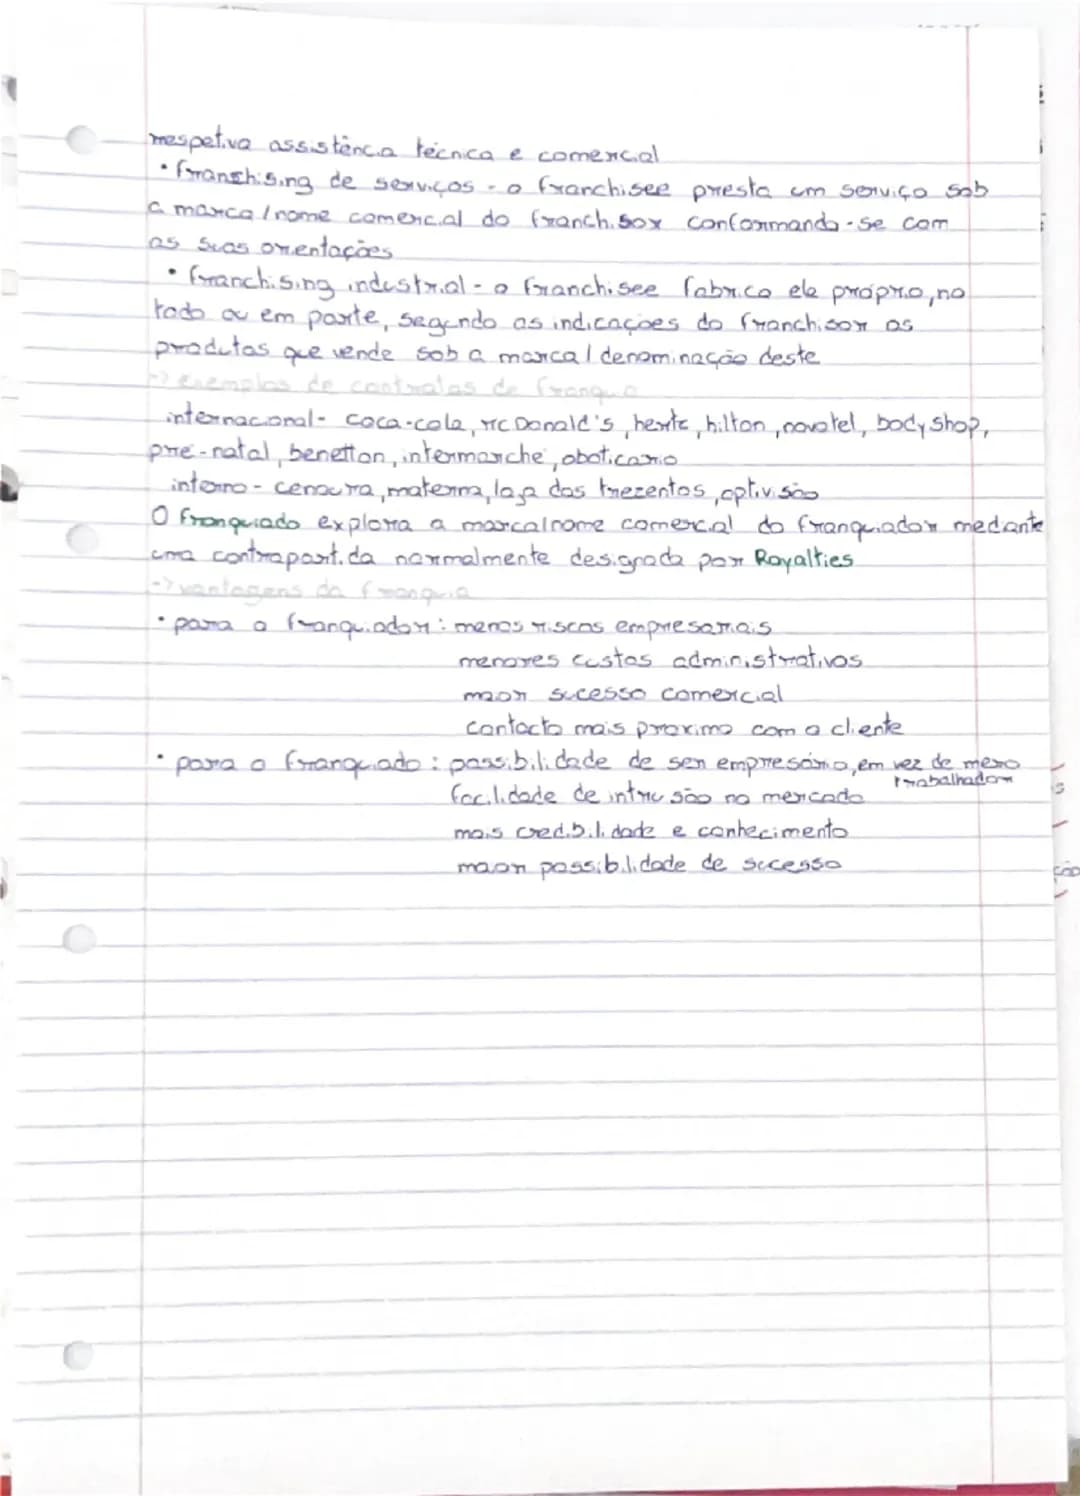 respetiva assistência técnica e comercial
• franshising de serviços - o franchisee presta um serviço sob
a marca/nome comercial do franchisor conformando-se com
as suas orientações
• franchising industrial - o franchisee fabrica ele próprio, no
todo ou em parte, segundo as indicações do franchisor os
produtos que vende sob a marca/denominação deste
-> exemplos de contratos de franquia
internacional- coca-cola, Mc Donald's, hertz, hilton, novotel, body shop,
pré-natal, benetton, intermarche, oboticario
interno - cenoura, materna, loja dos trezentos, optivisão
O franquiado explora a marca/nome comercial do franquiador mediante
uma contrapartida normalmente designada por Royalties
-> vantagens da franquia
• para o franquiador: menos riscos empresariais
menores custos administrativos
maior sucesso comercial
contacto mais proximo com o cliente
• para o franquiado: possibilidade de ser empresário, em vez de mero
trabalhador
facilidade de intrusão no mercado
mais credibilidade e conhecimento
maior possibilidade de sucesso